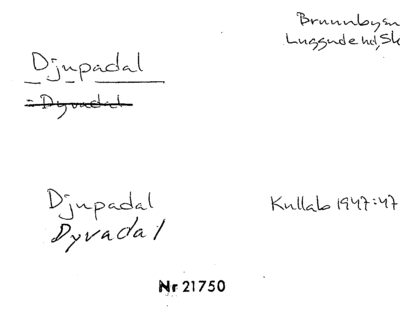 Brunnbysn
Luggude hd, Sk
Djupadal
= Dyvadal
Djupadal
Dyvadal
Kullab 1947:47
Nr 21750